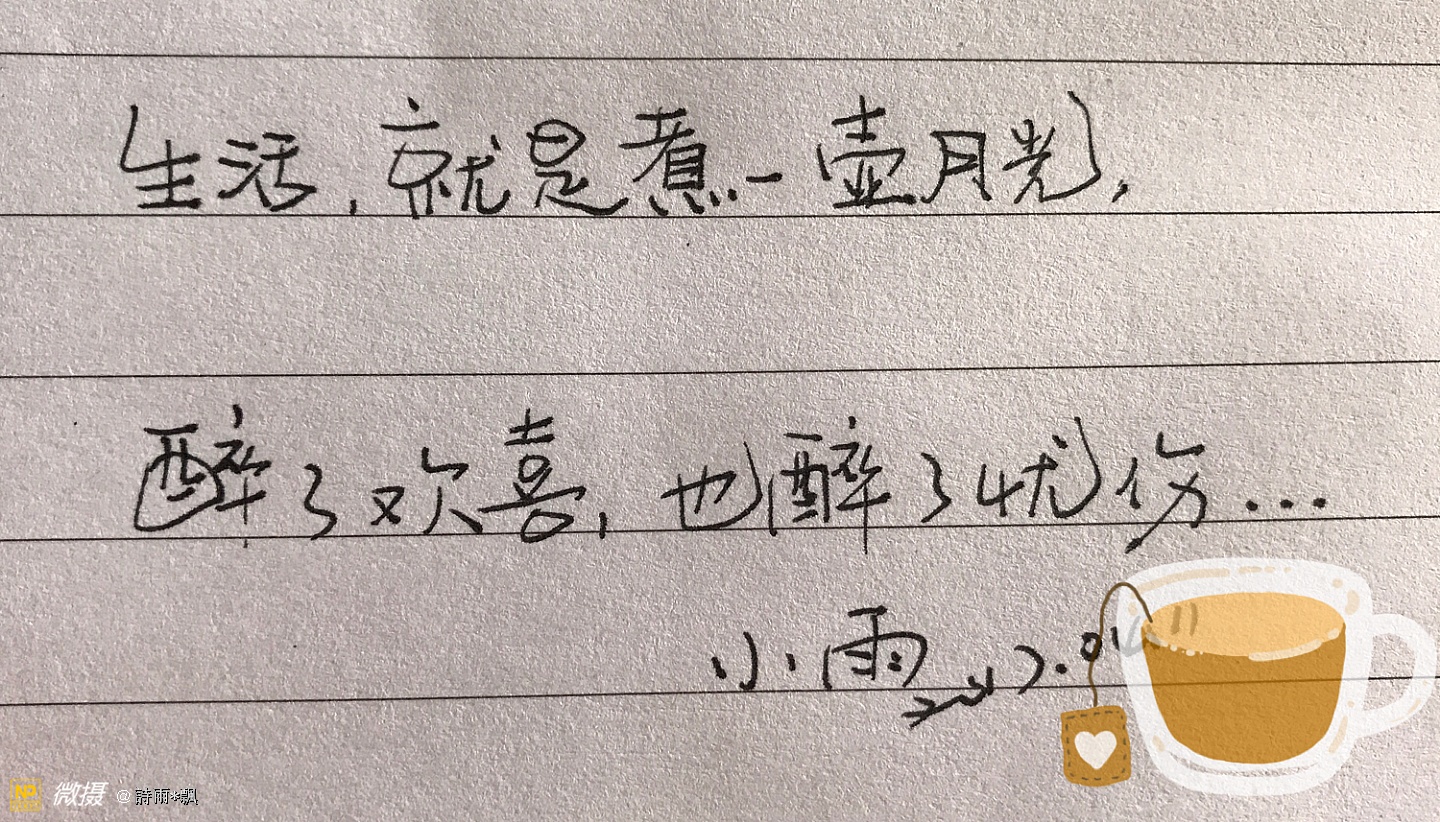 生活,就是煮一壶月光,
醉了欢喜,也醉了忧伤...
小雨
微摄 @ 詩雨*飘